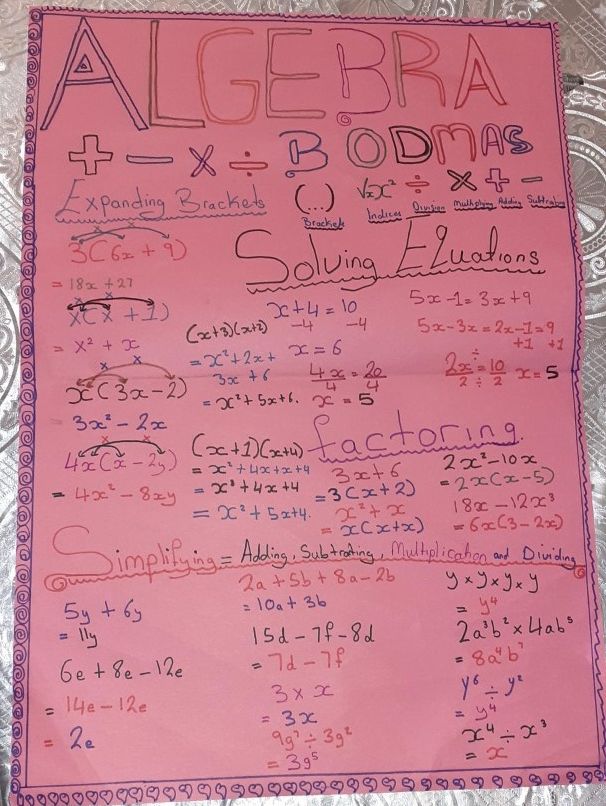 ALGEBRA
+ - × ÷ BODMAS
(...) √x x² ÷ × + -
Brackets Indices Division Multiplying Adding Subtrating
Expanding Brackets
3(6x + 9)
= 18x + 27
x(x + 1)
= x² + x
x(3x - 2)
3x² - 2x
4x(x - 2y)
= 4x² - 8xy
Solving Equations
(x+3)(x+2)
= x² + 2x +
3x + 6
= x² + 5x + 6.
(x+1)(x+4)
= x² + 4x + x + 4
= x² + 4x + 4
= x² + 5x + 4.
x + 4 = 10
-4 -4
x = 6
4x/4 = 20/4
x = 5
5x - 1 = 3x + 9
5x - 3x = 2x - 1 = 9
+1 +1
2x/2 ÷ = 10/2 ÷ x = 5
factoring.
3x + 6
= 3(x + 2)
x² + x
= x(x + x)
2x² - 10x
= 2x(x - 5)
18x - 12x³
= 6x(3 - 2x)
Simplifying = Adding, Subtrating, Multiplication and Dividing
5y + 6y
= 11y
6e + 8e - 12e
= 14e - 12e
= 2e
2a + 5b + 8a - 2b
= 10a + 3b
15d - 7f - 8d
= 7d - 7f
3 × x
= 3x
9g⁷ ÷ 3g²
= 3g⁵
y × y × y × y
= y⁴
2a³b² × 4ab⁵
= 8a⁴b⁷
y⁶ ÷ y²
= y⁴
x⁴ ÷ x³
= x